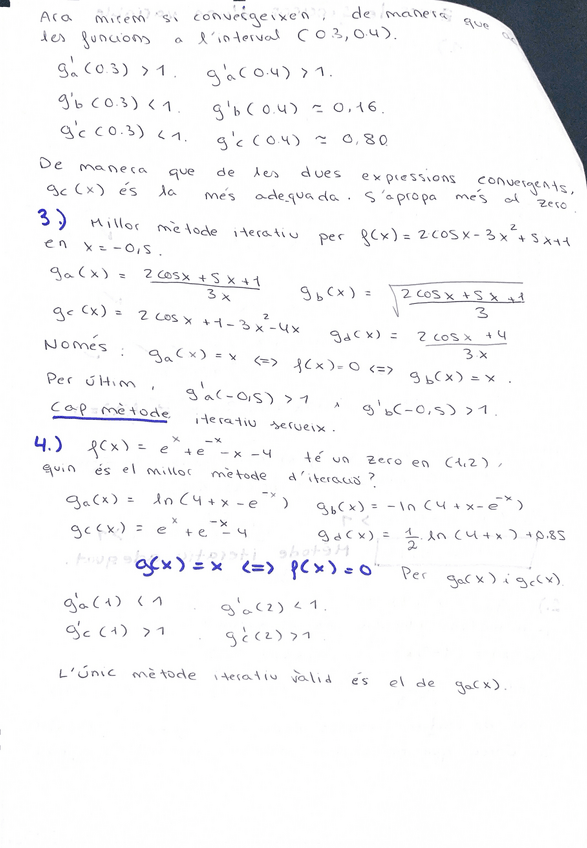 Ara mirem si convergeixen, de manera que
les funcions a l'interval (0.3, 0.4).
g'a(0.3) > 1. g'a(0.4) > 1.
g'b(0.3) < 1. g'b(0.4) ≈ 0,16.
g'c(0.3) < 1. g'c(0.4) ≈ 0,80
De manera que de les dues expressions convergents,
gc(x) és la més adequada. S'apropa més al zero.
3.) Millor mètode iteratiu per f(x) = 2cosx - 3x² + 5x + 1
en x = -0,5.
ga(x) = (2cosx + 5x + 1)/(3x) gb(x) = √((2cosx + 5x + 1)/3)
gc(x) = 2cosx + 1 - 3x² - 4x gd(x) = (2cosx + 4)/(3x)
Només: ga(x) = x <=> f(x) = 0 <=> gb(x) = x.
Per últim, g'a(-0,5) > 1 i g'b(-0,5) > 1.
Cap mètode iteratiu serveix.
4.) f(x) = e^x + e^-x - x - 4 té un zero en (1,2),
quin és el millor mètode d'iteració?
ga(x) = ln(4 + x - e^-x) gb(x) = -ln(4 + x - e^-x)
gc(x) = e^x + e^-x - 4 gd(x) = 1/2 ln(4 + x) + 0.85
g(x) = x <=> f(x) = 0 Per ga(x) i gc(x).
g'a(1) < 1 g'a(2) < 1.
g'c(1) > 1 g'c(2) > 1
L'únic mètode iteratiu vàlid és el de ga(x).